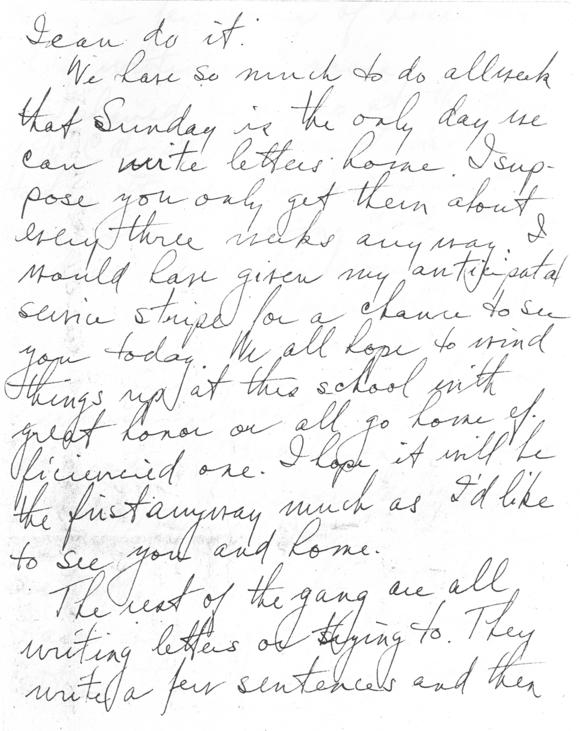 I can do it.
We have so much to do all week
that Sunday is the only day we
can write letters home. I sup-
pose you only get them about
every three weeks anyway. I
would have given my anticipated
service stripe for a chance to see
you today. We all hope to wind
things up at this school with
great honor or all go home ef-
ficiencied one. I hope it will be
the first anyway much as I'd like
to see you and home.
The rest of the gang are all
writing letters or trying to. They
write a few sentences and then